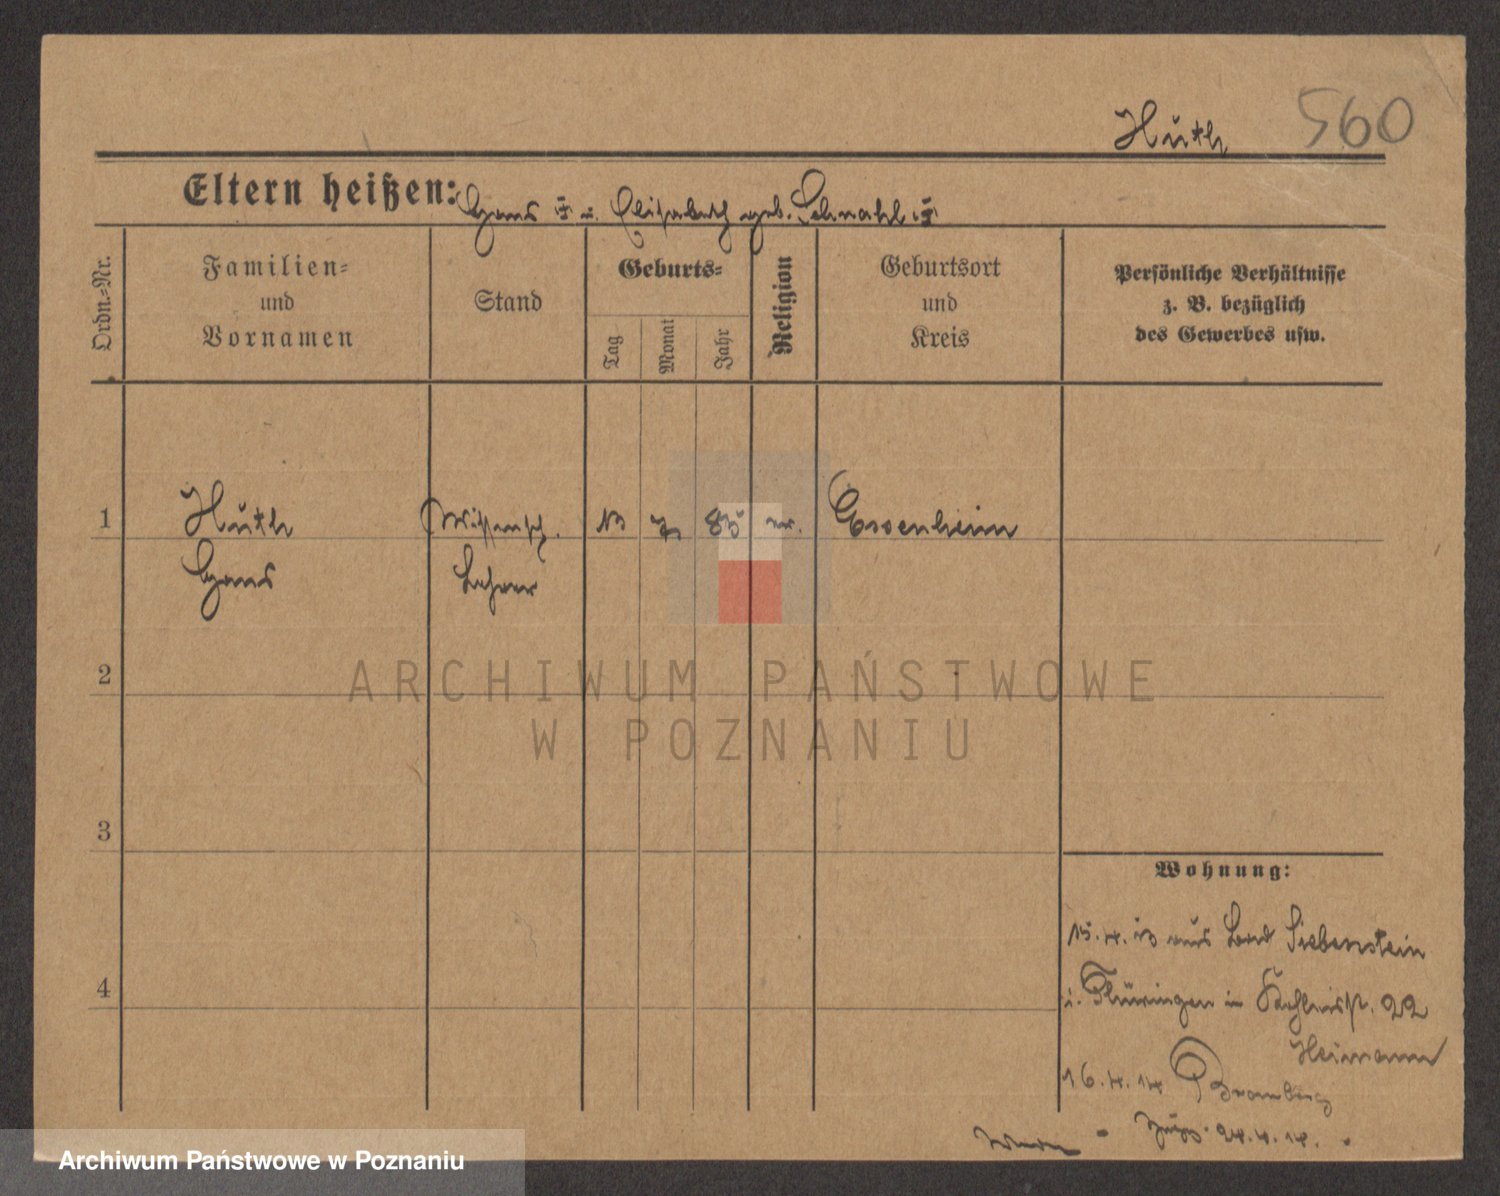 Huth 560
Eltern heißen: Hans u. Elisabeth geb.
Ordn.-Nr.
Familien-
und
Vornamen
Stand
Geburts-
Tag
Monat
Jahr
Religion
Geburtsort
und
Kreis
Persönliche Verhältnisse
z. B. bezüglich
des Gewerbes usw.
1 Huth Wissensch. 85 ev. Essenheim
Hans Lehrer
2
3
4
Wohnung:
15.4.13 aus Bad Liebenstein
i. Thüringen in 22
Heimann
16.4.14 Bromberg
24.4.14.
ARCHIWUM PAŃSTWOWE
W POZNANIU
Archiwum Państwowe w Poznaniu